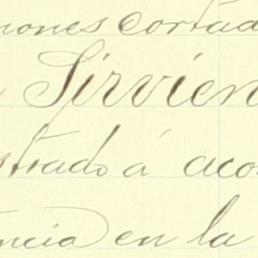 iones cortad
Sirvien
strado á aco
encia en la